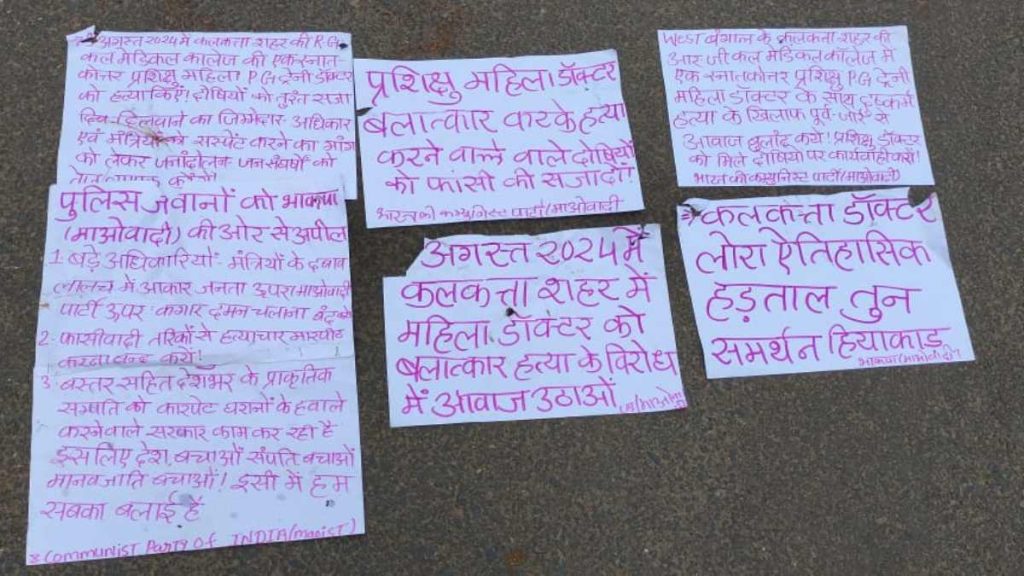 अगस्त 2024 में कलकत्ता शहर की R.G.
कल मेडिकल कालेज की एक स्नात-
कोत्तर प्रशिक्षु महिला PG ट्रेनी डॉक्टर
को हत्या किए! दोषियों को तुरंत सजा
दिलवाने का जिम्मेदार अधिकार
एवं मंत्रियों को सस्पेंट करने का मांग
को लेकर जनांदोलन जनसंघर्षों को
पुलिस जवानों को भाकपा
(माओवादी) की ओर से अपील
1. बड़े अधिकारियों- मंत्रियों के दबाव
लालच में आकार जनता ऊपर माओवादी
पार्टी ऊपर कगार दमन चलाना बंद करो
2- फासीवादी तरिकों से हत्याचार मारपीट
करना बन्द करो!
3. बस्तर सहित देशभर के प्राकृतिक
सम्पति को कारपेट घरानों के हवाले
करनेवाले सरकार काम कर रहा है
इसलिए देश बचाओं संपति बचाओं
मानवजाति बचाओं! इसी में हम
सबका बलाई है
Communist Party Of INDIA (maoist)
प्रशिक्षु महिला डॉक्टर
बलात्कार करके हत्या
करने वाले वाले दोषियों
को फांसी की सजा दो!
भारत की कम्युनिस्ट पार्टी (माओवादी
अगस्त 2024 में
कलकत्ता शहर में
महिला डॉक्टर को
बलात्कार हत्या के विरोध
में आवाज उठाओं
West बंगाल के कलकत्ता शहर की
आर जी कल मेडिकल कॉलेज में
एक स्नातकोत्तर प्रशिक्षु P.G ट्रेनी
महिला डॉक्टर के साथ दुष्कर्म
हत्या के खिलाफ पूर्व-जोर से
आवाज बुलांद करो! प्रशिक्षु डॉक्टर
को मिले दोषियों पर कार्यवाही करो!
भारत की कम्युनिस्ट पार्टी (माओवादी)
कलकत्ता डॉक्टर
लोरा ऐतिहासिक
हड़ताल तुन
समर्थन हियाकाड़
भाकपा (माओवादी)